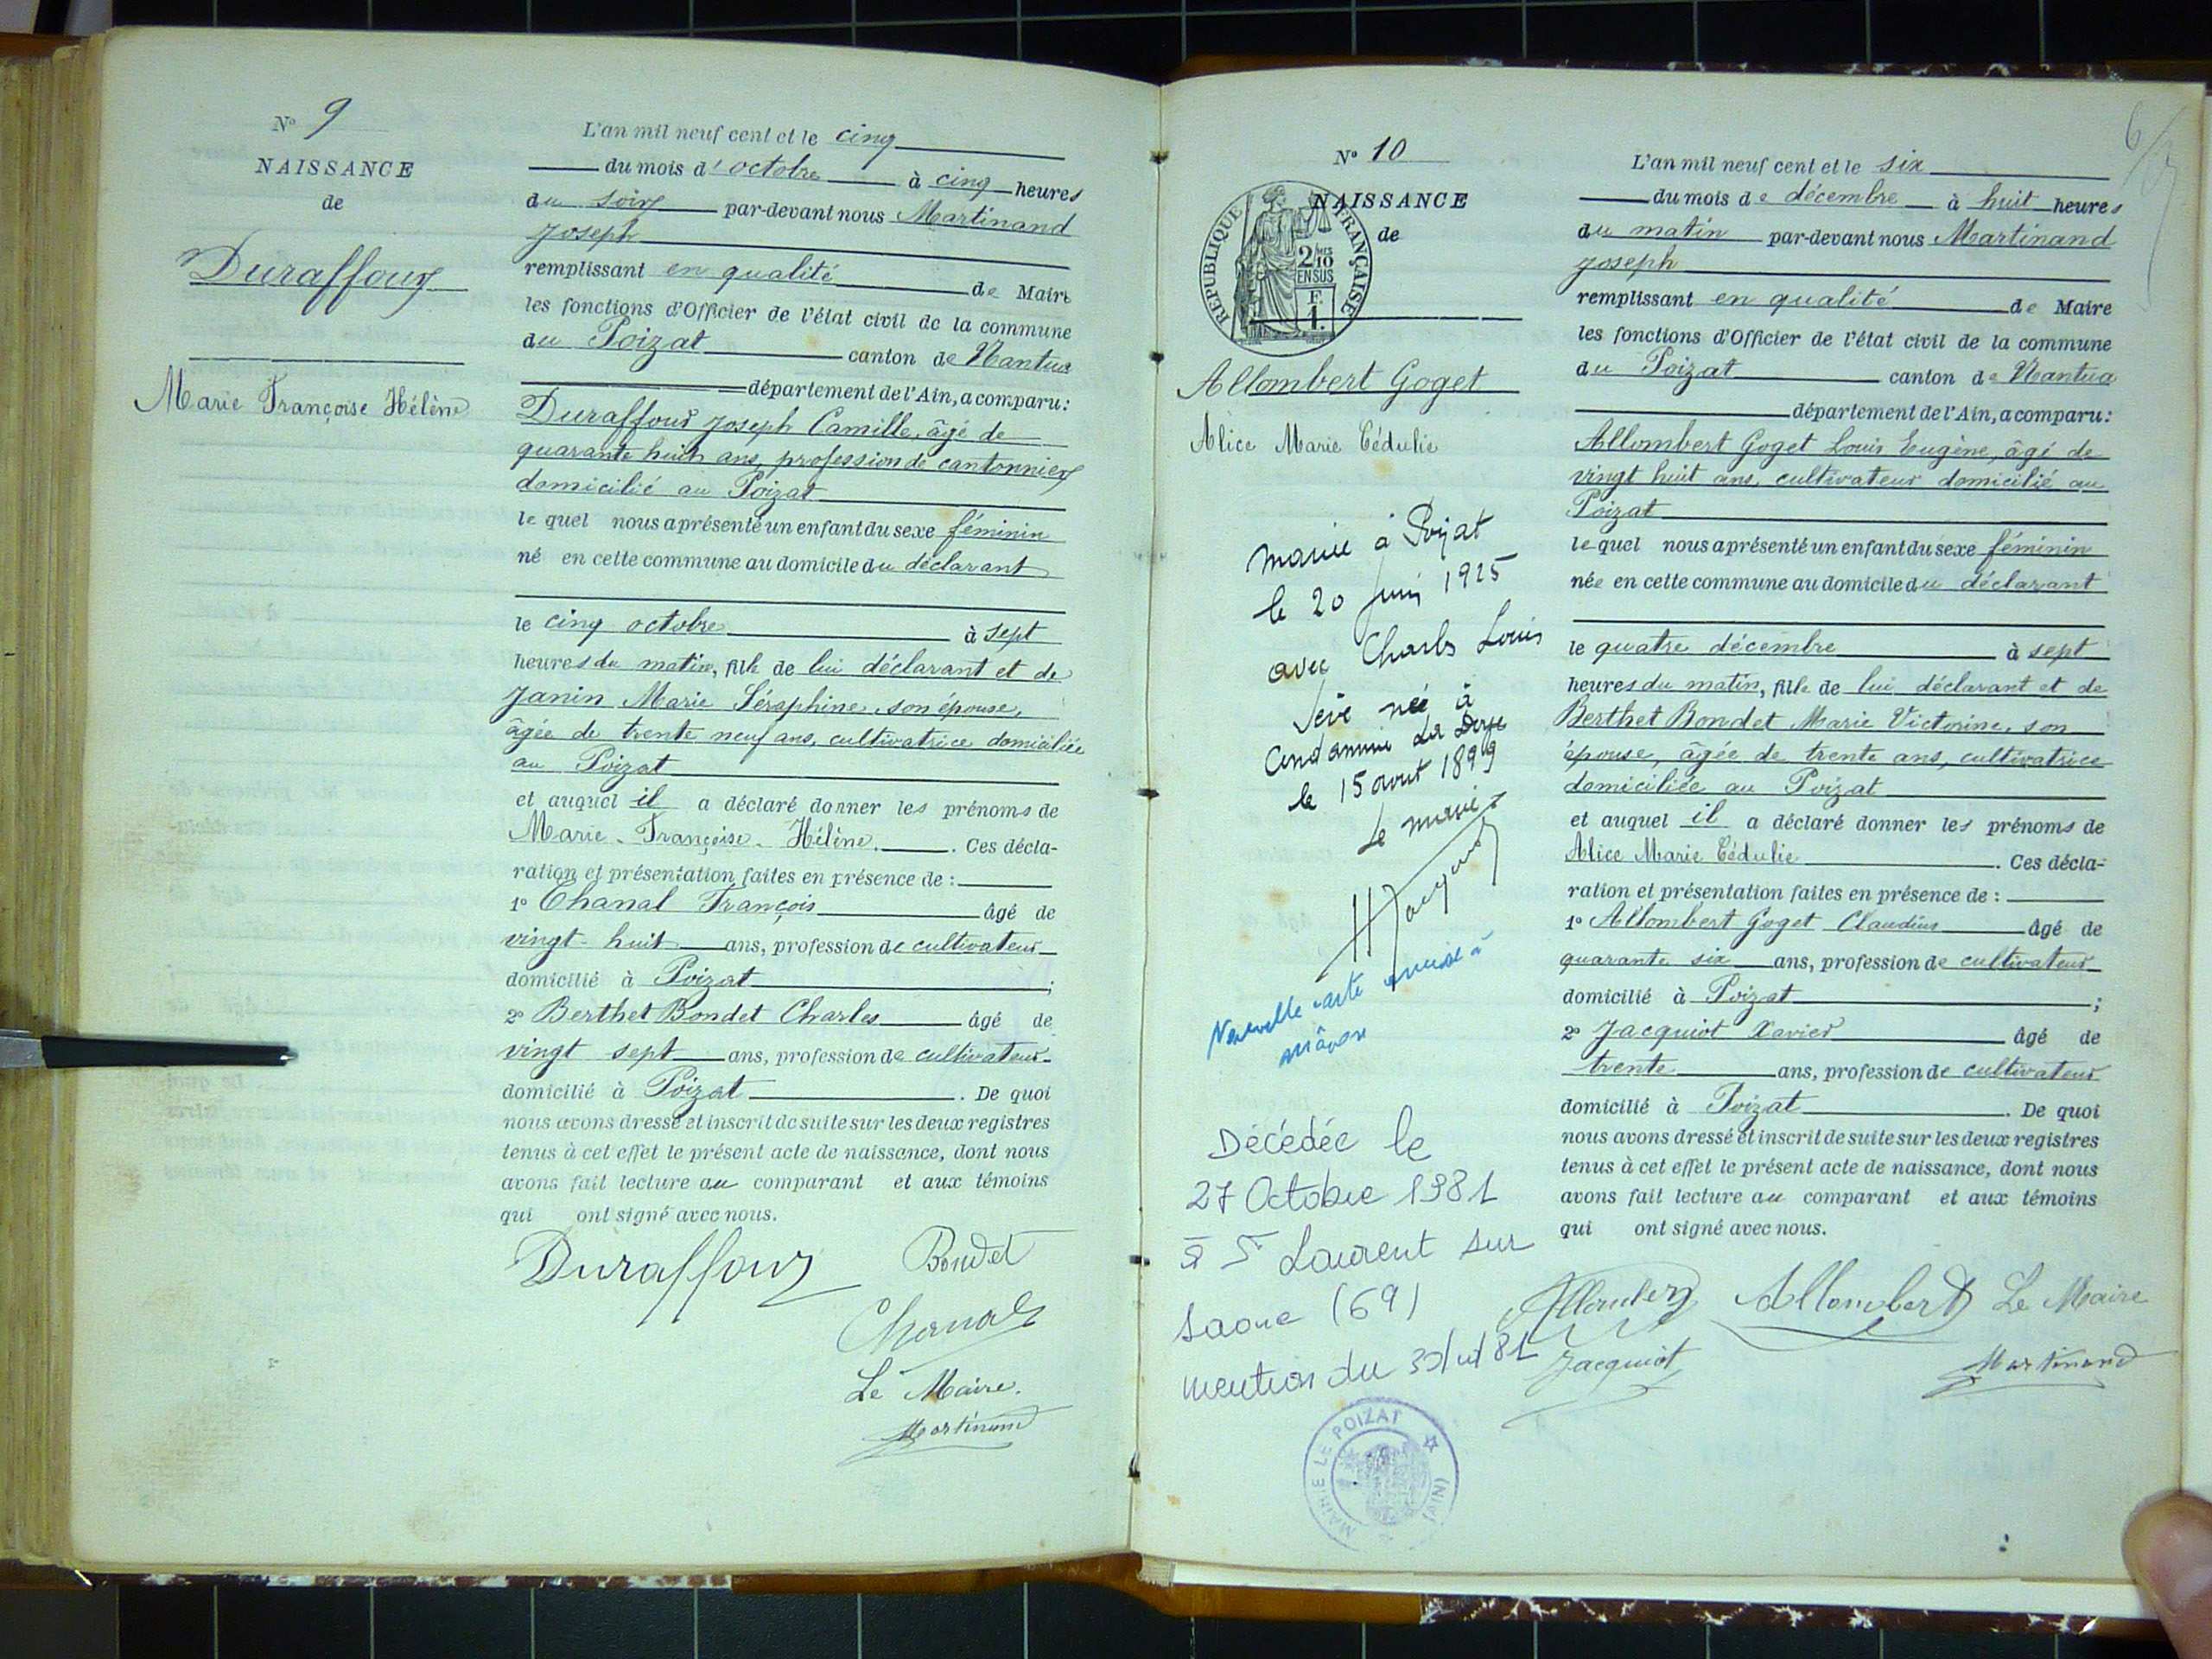 N° 9
NAISSANCE
de
Duraffour
Marie Françoise Hélène
L'an mil neuf cent et le cinq
du mois d'octobre à cinq heures
du soir par-devant nous Martinand
Joseph
remplissant en qualité de Maire
les fonctions d'Officier de l'état civil de la commune
du Poizat canton de Nantua
département de l'Ain, a comparu:
Duraffour Joseph Camille, âgé de
quarante huit ans, profession de cantonnier
domicilié au Poizat
le quel nous a présenté un enfant du sexe féminin
né en cette commune au domicile du déclarant
le cinq octobre à sept
heures du matin, fille de lui déclarant et de
Janin Marie Séraphine, son épouse,
âgée de trente neuf ans, cultivatrice domiciliée
au Poizat
et auquel il a déclaré donner les prénoms de
Marie-Françoise-Hélène. Ces décla-
ration et présentation faites en présence de :
1° Chanal François âgé de
vingt-huit ans, profession de cultivateur
domicilié à Poizat ;
2° Berthet Bondet Charles âgé de
vingt sept ans, profession de cultivateur
domicilié à Poizat . De quoi
nous avons dressé et inscrit de suite sur les deux registres
tenus à cet effet le présent acte de naissance, dont nous
avons fait lecture au comparant et aux témoins
qui ont signé avec nous.
Duraffour Bondet
Chanal
Le Maire.
Martinand
N° 10
NAISSANCE
de
RÉPUBLIQUE FRANÇAISE
2/10
EN SUS
F.
1.
Allombert Goget
Alice Marie Cédulie
mariée à Poizat
le 20 juin 1925
avec Charles Louis
Sève née à
Condamine La Doye
le 15 aout 1899
Le maire
Nouvelle carte
Décédée le
27 Octobre 1981
à St Laurent sur
Saone (69)
mention du
MAIRIE LE POIZAT (AIN)
L'an mil neuf cent et le six
du mois de décembre à huit heures
du matin par-devant nous Martinand
Joseph
remplissant en qualité de Maire
les fonctions d'Officier de l'état civil de la commune
du Poizat canton de Nantua
département de l'Ain, a comparu:
Allombert Goget Louis Eugène, âgé de
vingt huit ans, cultivateur domicilié au
Poizat
le quel nous a présenté un enfant du sexe féminin
née en cette commune au domicile du déclarant
le quatre décembre à sept
heures du matin, fille de lui déclarant et de
Berthet Bondet Marie Victorine, son
épouse, âgée de trente ans, cultivatrice
domiciliée au Poizat
et auquel il a déclaré donner les prénoms de
Alice Marie Cédulie . Ces décla-
ration et présentation faites en présence de :
1° Allombert Goget Claudius âgé de
quarante six ans, profession de cultivateur
domicilié à Poizat ;
2° Jacquiot Xavier âgé de
trente ans, profession de cultivateur
domicilié à Poizat . De quoi
nous avons dressé et inscrit de suite sur les deux registres
tenus à cet effet le présent acte de naissance, dont nous
avons fait lecture au comparant et aux témoins
qui ont signé avec nous.
Allombert Allombert Le Maire
Jacquiot Martinand